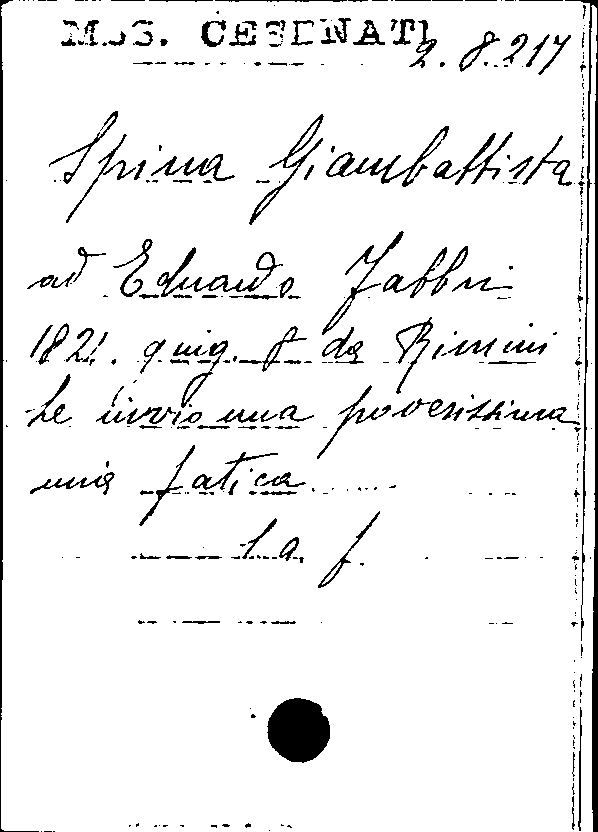 MSS. CESENATI
2. 8. 217
Spina Giambattista
ad Eduardo Fabbri
1821. giug. 8 da Rimini
Le invio una poverissima
mia fatica.....
1 a. f.